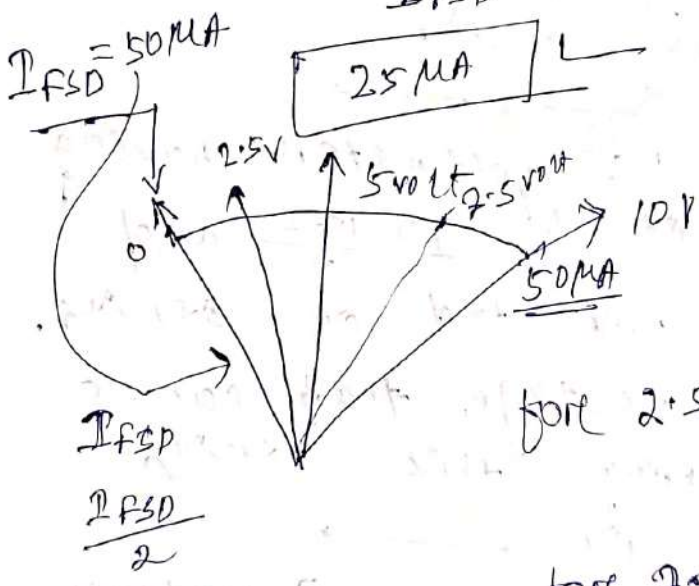 I_FSD = 50 MA
25 MA
2.5V
5 volt
7.5 volt
10V
0
50MA
I_FSD
I_FSD
2
fore 2.5